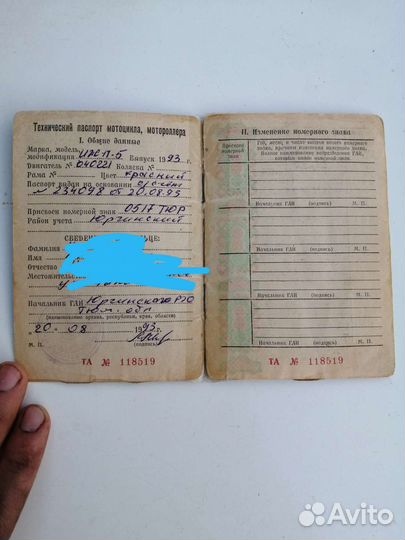 Технический паспорт мотоцикла, мотороллера
I. Общие данные
Марка, модель,
модификация ИЖП-5 Выпуск 1993 г.
Двигатель № 040221 Коляска №
Рама № Цвет красный
Паспорт выдан на основании
№ 234098 от 20.08.93
Присвоен номерной знак 0517 ТЮР
Район учета Юргинский
СВЕДЕ
ЬЦЕ:
Фамилия
Имя
Отчество
Местожительство
Начальник ГАИ Юргинского РЭО
Тюм. обл
(наименование органа, республики, края, области)
" 20 " 08 1993 г.
М. П. (подпись)
ТА № 118519
II. Изменение номерного знака
Присвоен номерной знак
Год, месяц и число выдачи нового номерного знака, причины изменения номерного знака. Полное наименование подразделения ГАИ, которым выдан номерной знак
Начальник ГАИ (подпись) М. П.
Начальник ГАИ (подпись) М. П.
Начальник ГАИ (подпись) М. П.
Начальник ГАИ (подпись) М. П.
ТА № 118519
Avito